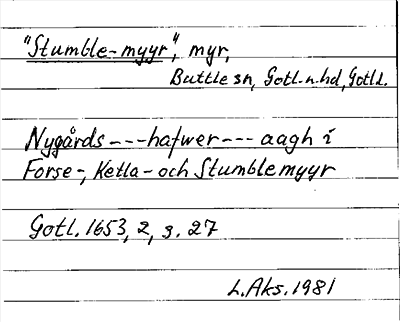 "Stumble-myyr", myr,
Buttle sn, Gotl. n. hd, Gotl. l.
Nygårds---hafwer---aagh i
Forse-, Ketla- och Stumblemyyr
Gotl. 1653, 2, s. 27
L. Aks. 1981